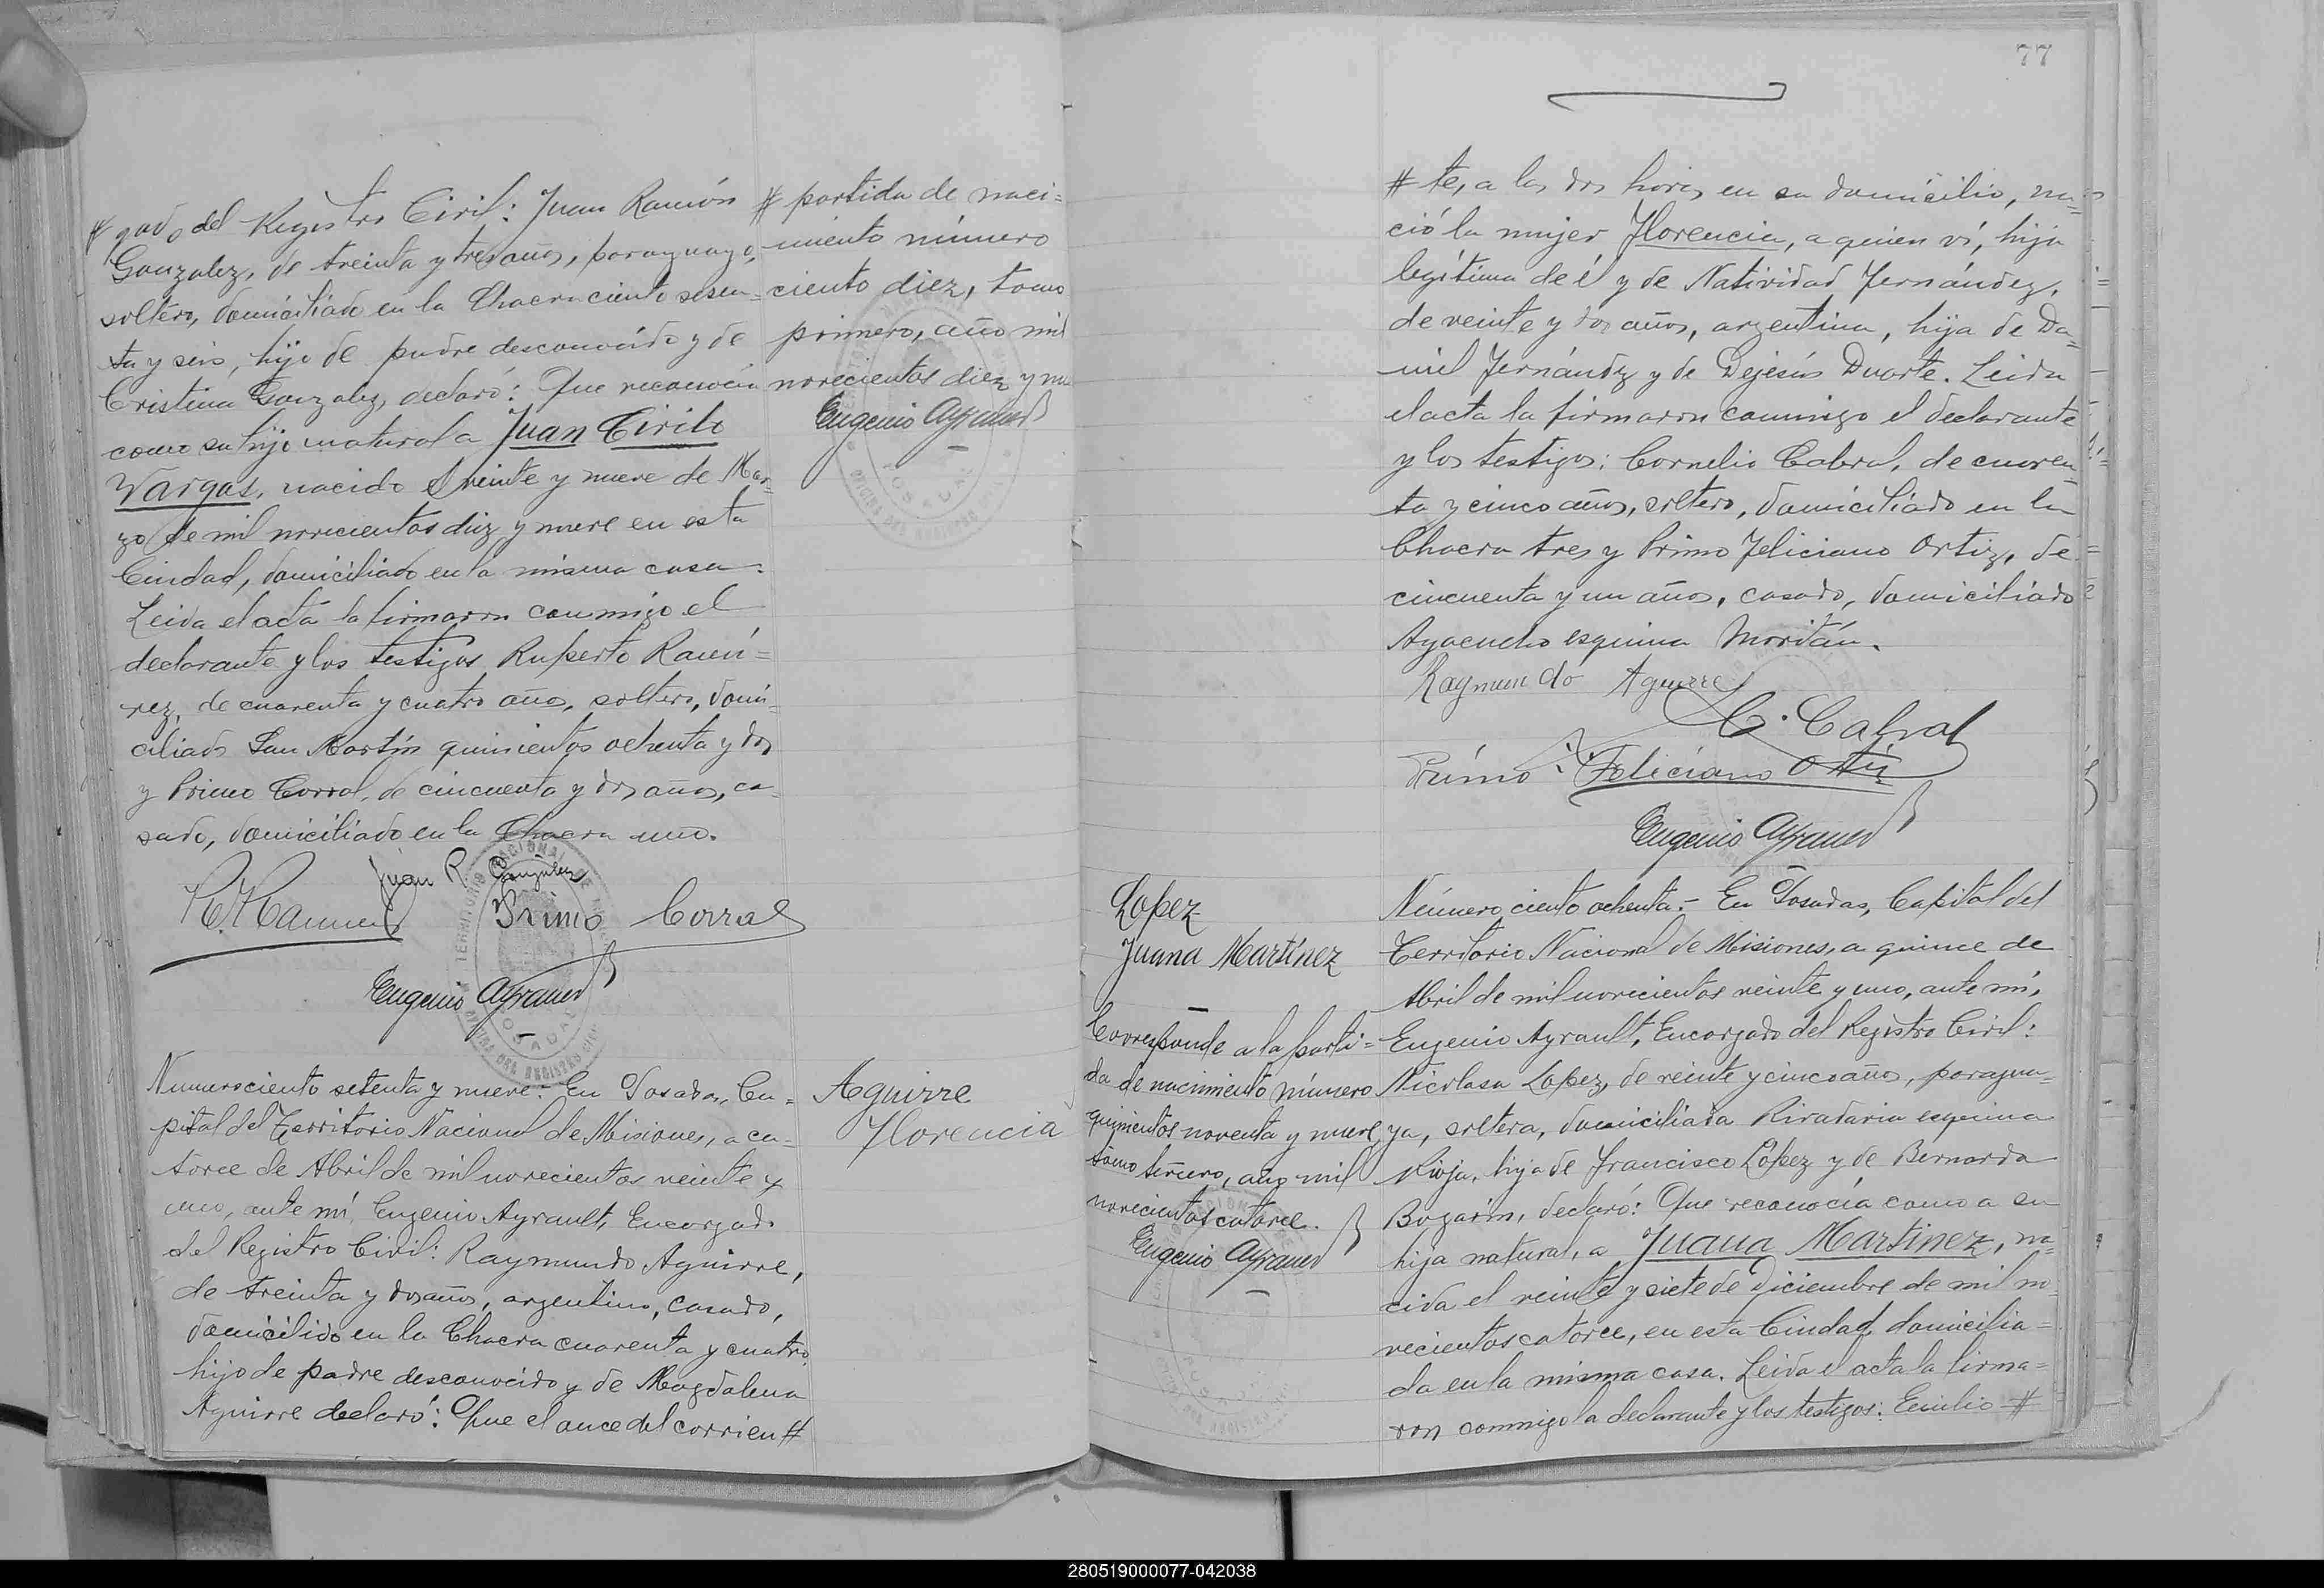 # gado del Registro Civil: Juan Ramón
Gonzalez, de treinta y tres años, paraguayo,
soltero, domiciliado en la Chacra ciento sesen=
ta y seis, hijo de padre desconocido y de
Cristina Gonzalez, declaró: Que reconocía
como su hijo natural a Juan Cirilo
Vargas, nacido el veinte y nueve de Mar=
zo de mil novecientos diez y nueve en esta
Ciudad, domiciliado en la misma casa.
Leida el acta la firmaron conmigo el
declarante y los testigos Ruperto Ramí=
rez, de cuarenta y cuatro años, soltero, domi=
ciliado San Martín quinientos ochenta y dos
y Primo Corral, de cincuenta y dos años, ca=
sado, domiciliado en la Chacra uno.
Juan R. González
Primo Corral
Eugenio Ayrault
# partida de naci=
miento número
ciento diez, tomo
primero, año mil
novecientos diez y nu
Eugenio Ayrault
Numero ciento setenta y nueve:- En Posadas, Ca=
pital del Territorio Nacional de Misiones, a ca=
torce de Abril de mil novecientos veinte y
uno, ante mí, Eugenio Ayrault, Encargado
del Registro Civil: Raymundo Aguirre,
de treinta y dos años, argentino, casado,
domicilido en la Chacra cuarenta y cuatro,
hijo de padre desconocido y de Magdalena
Aguirre declaró: Que el once del corrien #
Aguirre
Florencia
77
# te, a las dos horas en su domicilio, na=
ció la mujer Florencia, a quien ví, hija
legítima de él y de Natividad Fernández,
de veinte y dos años, argentina, hija de Da=
niel Fernández y de Dejesús Duarte. Leida
el acta la firmaron conmigo el declarante
y los testigos: Cornelio Cabral, de cuaren=
ta y cinco años, soltero, domiciliado en la
Chacra tres y Primo Feliciano Ortiz, de
cincuenta y un años, casado, domiciliado
Ayacucho esquina Moritán.
Raymundo Aguirre
C. Cabral
Primo Feliciano Ortiz
Eugenio Ayrault
Lopez
Juana Martínez
Corresponde a la parti=
da de nacimiento número
quinientos noventa y nueve,
tomo tercero, año mil
novecientos catorce.
Eugenio Ayrault
Número ciento ochenta:- En Posadas, Capital del
Territorio Nacional de Misiones, a quince de
Abril de mil novecientos veinte y uno, ante mí,
Eugenio Ayrault, Encargado del Registro Civil:
Nicolasa Lopez, de veinte y cinco años, paragua=
ya, soltera, domiciliada Rivadavia esquina
Rioja, hija de Francisco López y de Bernarda
Bogarín, declaró: Que reconocía como a su
hija natural, a Juana Martínez, na=
cida el veinte y siete de Diciembre de mil no
vecientos catorce, en esta Ciudad, domicilia=
da en la misma casa. Leida el acta la firma=
ron conmigo la declarante y los testigos: Emilio #
280519000077-042038